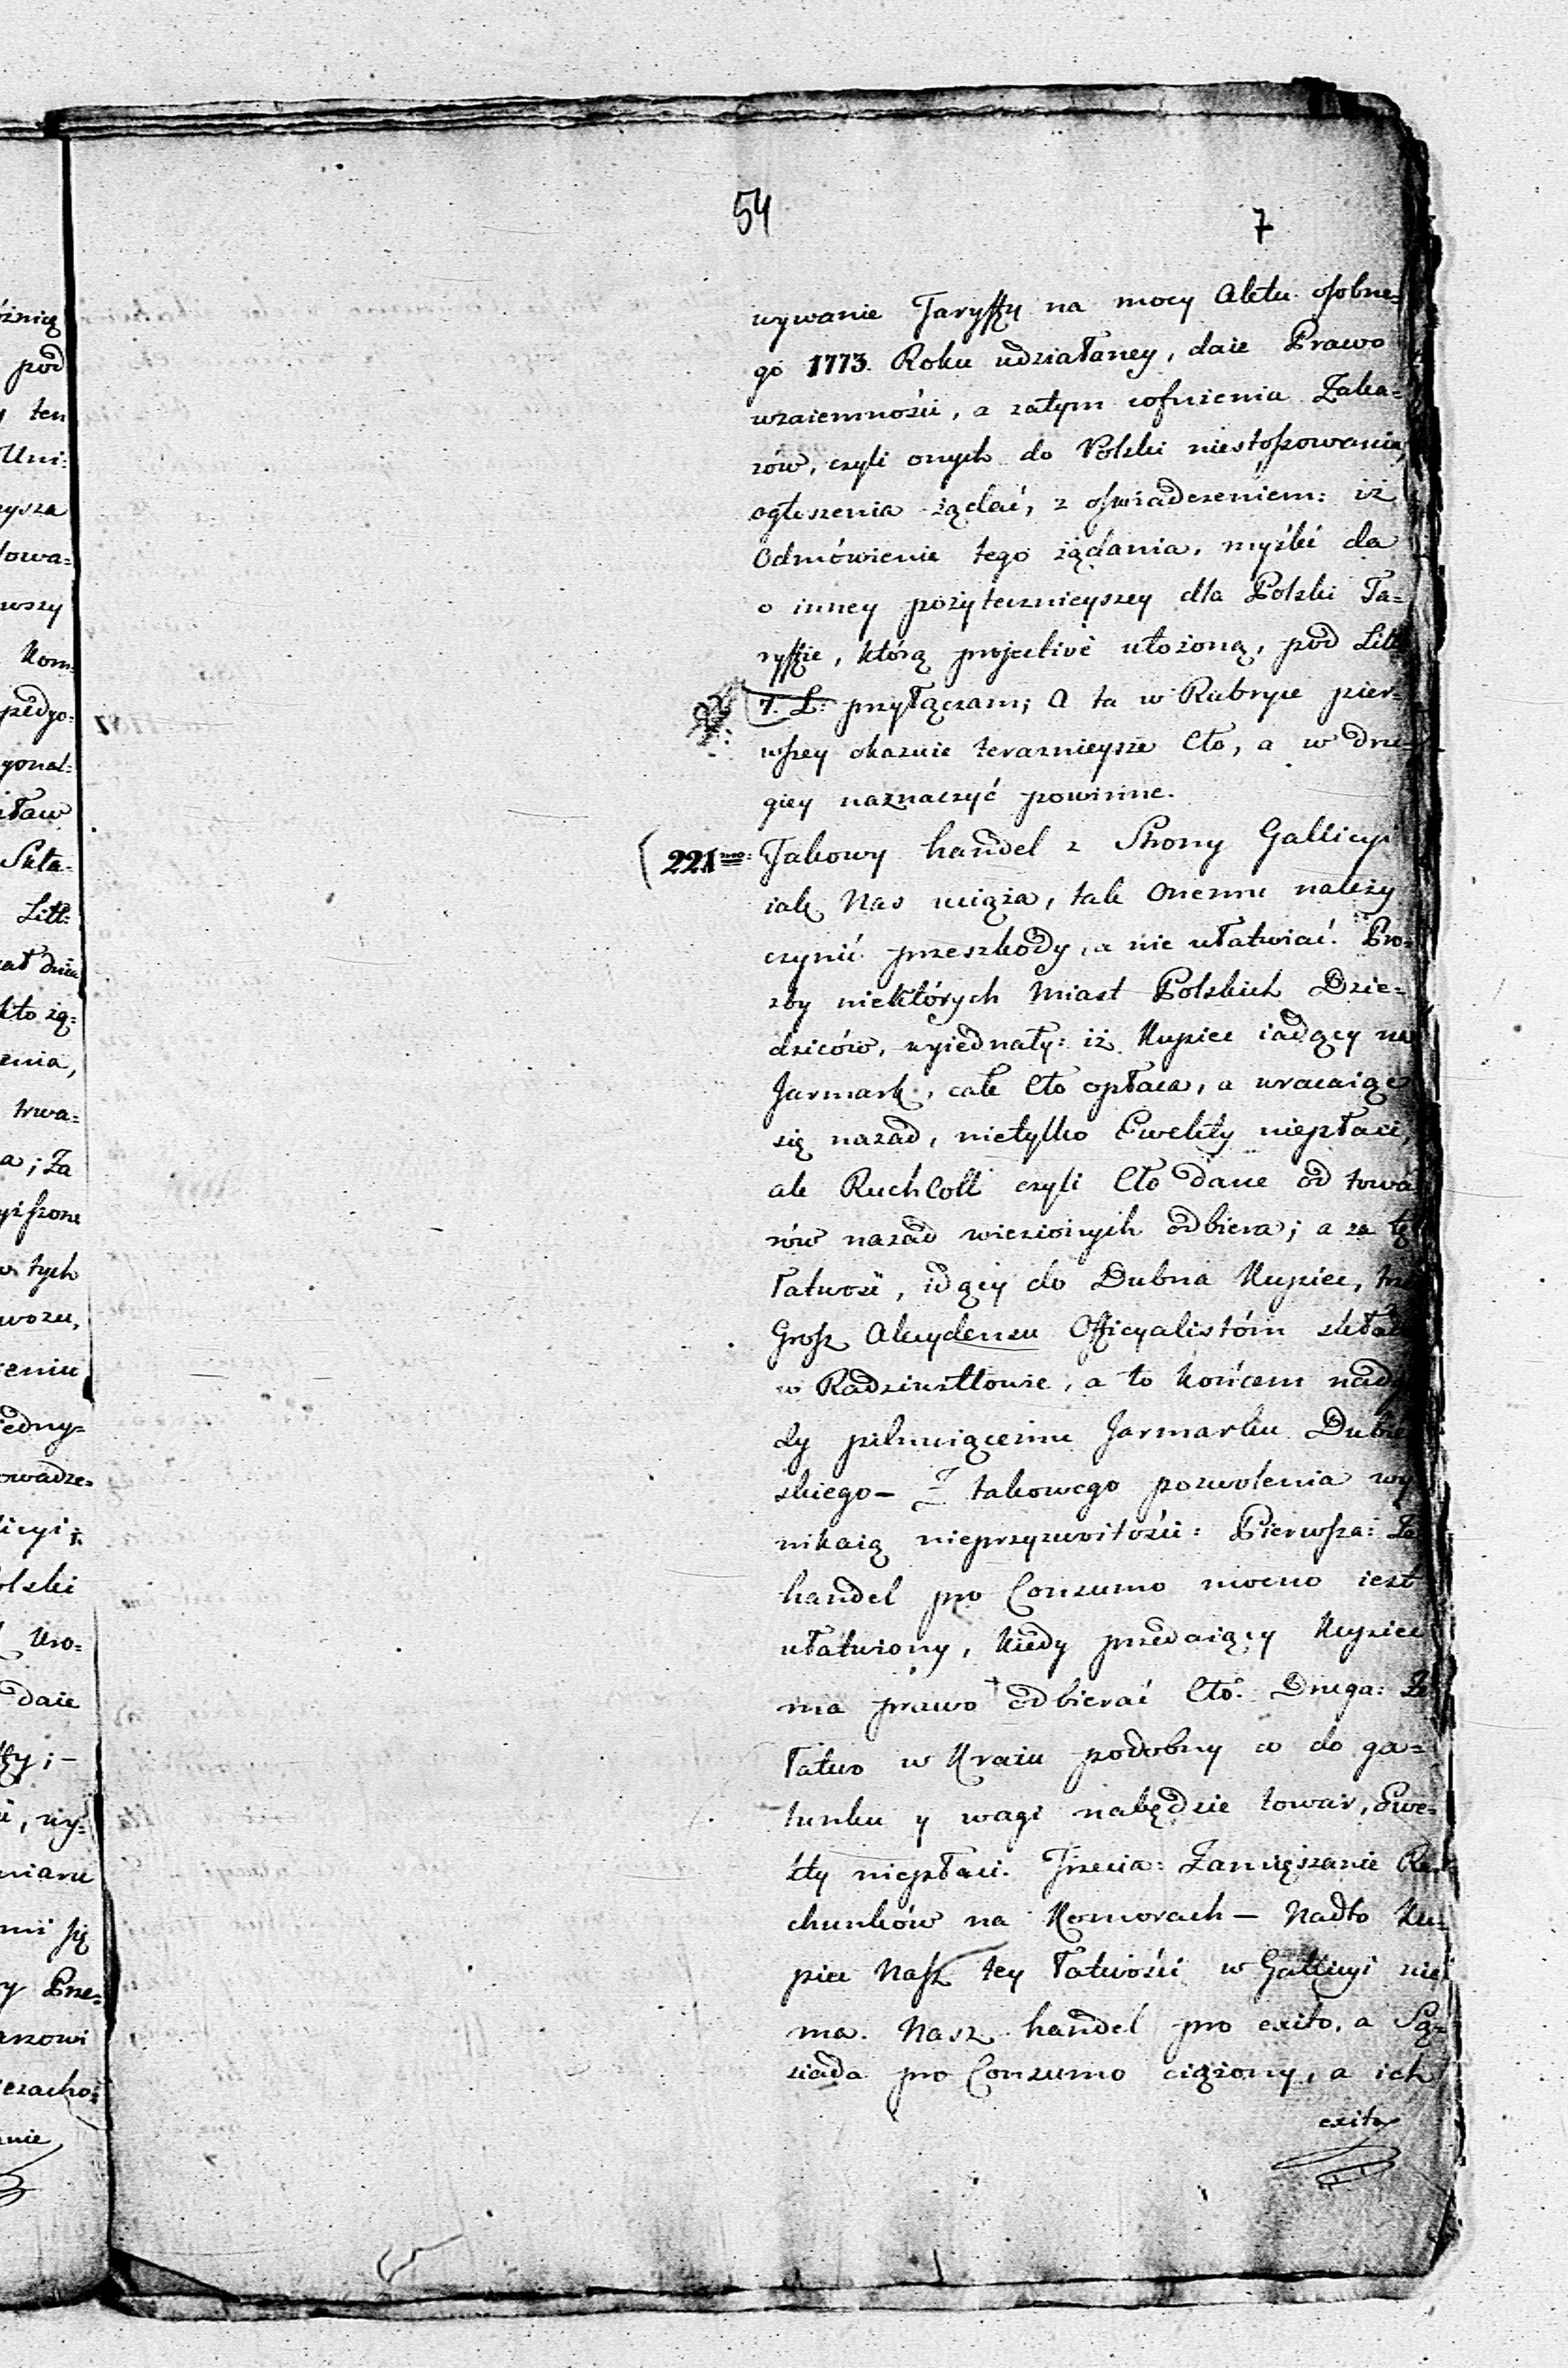 54
7
wywanie Taryffy na mocy Aktu osobne=
go 1773. Roku udziałaney, daie Prawo
wzaiemności, a zatym cofnienia Zaka=
zów, czyli onych do Polski niestosowania,
ogłoszenia żądać, z oświadczeniem: iż
Odmówienie tego żądania, myśleć da
o inney pożytecznieyszey dla Polski Ta=
ryffie, którą projective ułożoną, pod Litt
7. L: przyłączam; A ta w Rubryce pier=
wszey okazuie teraznieysze Cło, a w dru=
giey naznaczyć powinne.
(221mo: Takowy handel z Strony Gallicyi
iak Nas uciąża, tak Onemu należy
czynić przeszkody, a nie ułatwiać. Pro=
zby niektórych Miast Polskich Dzie=
dziców, wyiednały: iż Kupiec iadący na
Jarmark, całe Cło opłaca, a wracaiąc
się nazad, nietylko Ewekty niepłaci,
ale RuchColl czyli Cło dane od towa
rów nazad wiezionych odbiera; a za tę
łatwość, idący do Dubna Kupiec,
Grosz Akcydensu Officyalistóm składa
w Radziwiłłowie, a to końcem
dy pilnuiącemu Jarmarku Dubie
skiego – Z takowego pozwolenia wy
nikaią nieprzyzwoitości: Pierwsza: Że
handel pro Consumo mocno iest
ułatwiony, kiedy przedaiący Kupiec
ma prawo odbierać Cło. Druga: Że
łatwo w Kraiu podobny co do ga=
tunku y wagi nabędzie towar, Ewe=
kty niepłaci. Trzecia: Zamięszanie Ra
chunków na Komorach – Nadto Ku=
piec Nasz tey łatwości w Gallicyi nie
ma. Nasz handel pro exito, a Są=
siada pro Consumo ciążony, a ich
exito
óżnią
pod
y ten
Uni:
rysza
dowa=
wszy
Kom=
pedyo:
gonal=
sław
Skła=
Litt:
ał dniu
kto żą=
enia,
trwa=
a; Za
yższone
w tych
wozu,
zeniu
iedny=
owadze=
licyi;
olski
Kro=
daie
ffy; –
, wy=
miaru
mi się
y Prze=
arzowi
ezacho=
anie